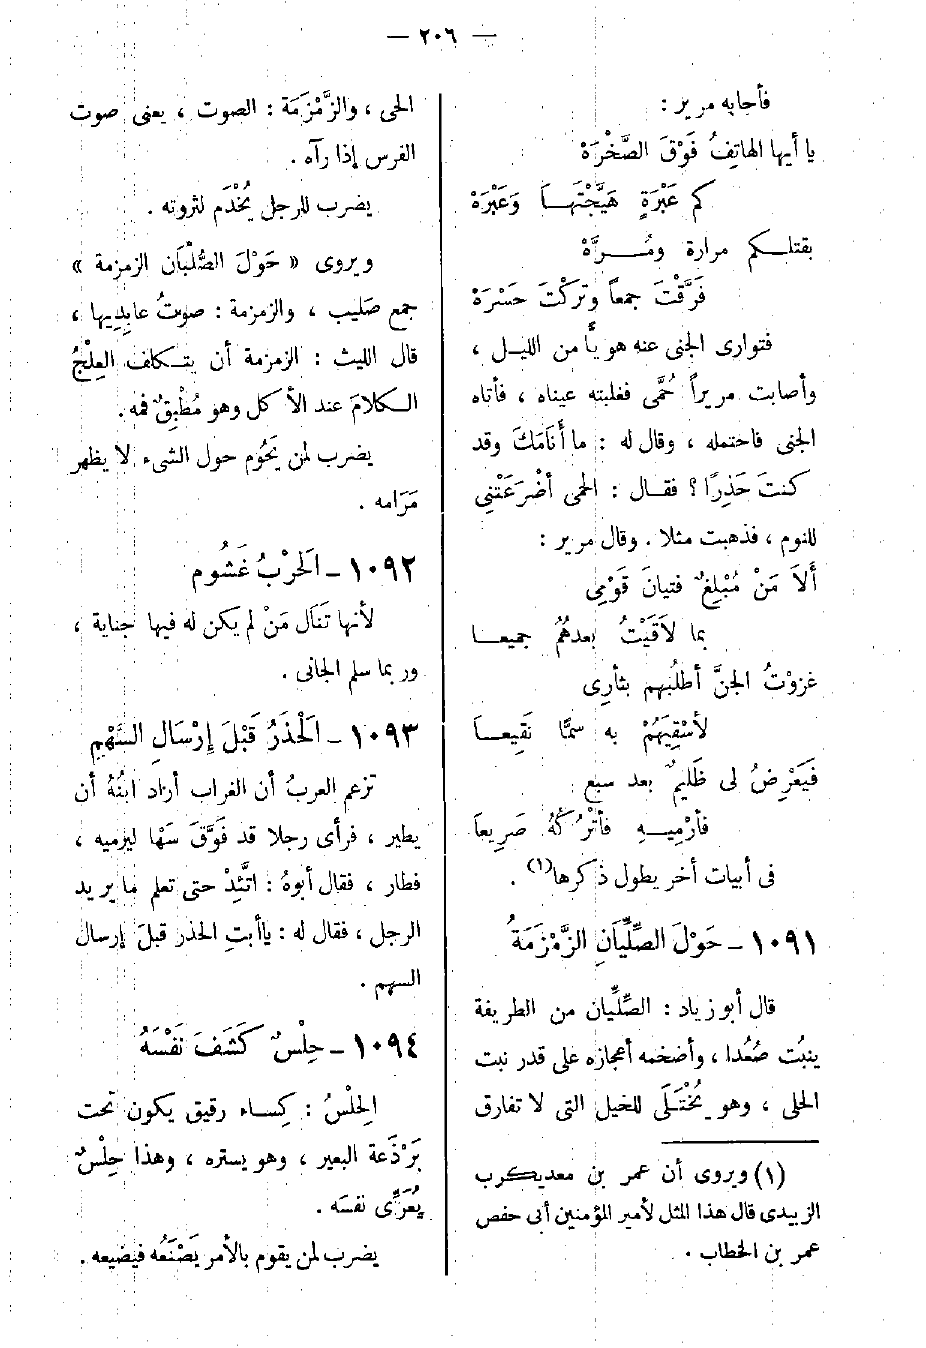 — ٢٠٦ —
فأجابه مرير :
يا أيها الهاتِفُ فَوْقَ الصَّخْرَهْ
كم عَبْرَةٍ هَيَّجْتَهَا وَعَبْرَهْ
بقتلكم مرارة ومُرَّهْ
فَرَّقْتَ جمعاً وتركْتَ حَسْرَهْ
فتوارى الجنى عنه هوياًّ من الليل ،
وأصابت مريراً حُمَّى فغلبته عيناه ، فأتاه
الجنى فاحتمله ، وقال له : ما أَنَامَكَ وقد
كنتَ حَذِرًا ؟ فقال : الحمى أضْرَعَتْنِي
للنوم ، فذهبت مثلا . وقال مرير :
أَلاَ مَنْ مُبْلِغٌ فتيانَ قَوْمِى
بما لاَقَيْتُ بعدهُمُ جميعا
غزوْتُ الجنَّ أطلُبهم بثأرِى
لأسْقِيَهُمْ به سمًّا نَقِيعاَ
فَيَعْرِضُ لى ظَليمٌ بعد سبع
فأرْمِيهِ فأتْرُكُهُ صَرِيعاَ
فى أبيات أخر يطول ذكرها(١) .
١٠٩١ ـ حَوْلَ الصِّلِّيَانِ الزَّمْزَمَةُ
قال أبو زياد : الصِّلِّيان من الطريفة
ينبُت صُعُدا ، وأضخمه أعجازه على قدر نبت
الحلى ، وهو يُخْتَلَى للخيل التى لا تفارق
(١) ويروى أن عمر بن معديكرب
الزبيدى قال هذا المثل لأمير المؤمنين أبى حفص
عمر بن الخطاب .
الحى ، والزَّمْزَمَة : الصوت ، يعنى صوت
الفرس إذا رآه .
يضرب للرجل يُخْدَم لثروته .
ويروى « حَوْلَ الصُّلْبَان الزمزمة »
جمع صَليب ، والزمزمة : صوتُ عابِدِيها ،
قال الليث : الزمزمة أن يتكلف العِلْجُ
الكلامَ عند الأكل وهو مُطْبِقٌ فمه .
يضرب لمن يَحُوم حول الشىء لا يظهر
مَرَامه .
١٠٩٢ ـ اَلحَرْبُ غَشُوم
لأنها تَنَال مَنْ لم يكن له فيها جناية ،
وربما سلم الجانى .
١٠٩٣ ـ اَلْحَذَرُ قَبْلَ إِرْسَالِ السَّهْمِ
تزعم العربُ أن الغراب أراد ابنُهُ أن
يطير ، فرأى رجلا قد فَوَّقَ سَهْما ليرميه ،
فطار ، فقال أبوهُ : اتَّئِدْ حتى تعلم ما يريد
الرجل ، فقال له : ياأبتِ الحذر قبلَ إرسال
السهم .
١٠٩٤ ـ حِلْسٌ كَشَفَ نَفْسَهُ
الحِلْسُ : كِساء رقيق يكون تحت
بَرْذَعة البعير ، وهو يستره ، وهذا حِلْسٌ
يُعَرِّى نفسَه .
يضرب لمن يقوم بالأمر يَصْنَعُه فيضيعه .